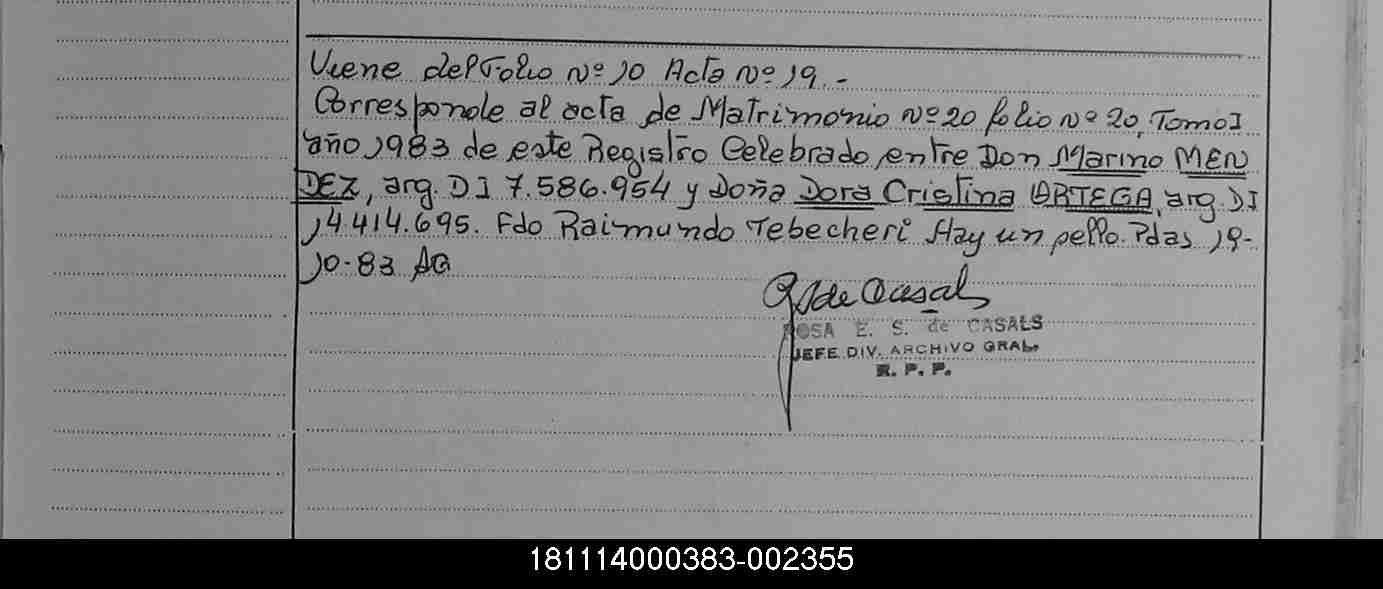 Viene del Folio Nº 10 Acta Nº 19.-
Corresponde al acta de Matrimonio Nº 20 folio Nº 20, Tomo I
año 1983 de este Registro Celebrado entre Don Marino MEN
DEZ, arg. DI 7.586.954 y Doña Dora Cristina ORTEGA, arg. DI
14.414.695. Fdo Raimundo Tebecheri Hay un sello. Pdas 19-
10-83 AG
R S de Casals
ROSA E. S. de CASALS
JEFE DIV. ARCHIVO GRAL.
R. P. P.
181114000383-002355